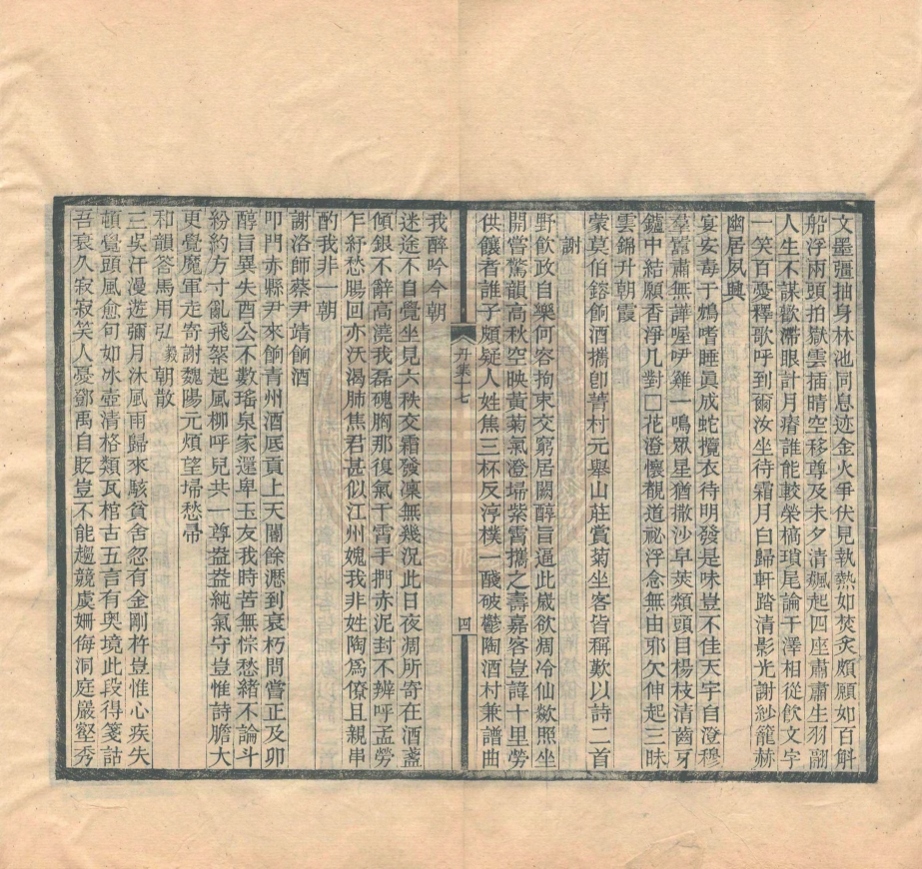 文墨彊抽身林池同息迹金火爭伏見執熱如焚炙頗願如百斛
船浮兩頭拍獄雲插晴空移尊及未夕清飆起四座肅肅生羽翮
人生不謀歡滯眼計月瘠誰能較榮槁瑣尾論干澤相從飲文字
一笑百憂釋歌呼到爾汝坐待霜月白歸軒踏清影光謝紗籠赫
幽居夙興
宴安毒于鴆嗜睡眞成蛇攬衣待明發是味豈不佳天宇自澄穆
羣囂肅無譁喔咿雞一鳴眾星猶撒沙皁莢頮頭目楊枝清齒牙
鑪中結願香淨几對□花澄懷觀道祕浮念無由邪欠伸起三昧
雲錦升朝霞
蒙莫伯鎔餉酒攜卽菁村元舉山莊賞菊坐客皆稱歎以詩二首
謝
野飲政自樂何容拘束交窮居闕醇旨逼此歲欲凋冷仙歘照坐
開嘗驚韻高秋空映黃菊氣澄埽紫霄攜之壽嘉客豈諱十里勞
供饟者誰子頗疑人姓焦三杯反淳樸一醆破鬱陶酒村兼譜曲
丹集十七
四
我醉吟今朝
迷途不自覺坐見六秩交霜發凜無幾況此日夜凋所寄在酒盞
傾銀不辭高澆我磊磈胸那復氣干霄手捫赤泥封不辨呼孟勞
乍紓愁腸回亦沃渴肺焦君甚似江州媿我非姓陶爲僚且親串
酌我非一朝
謝洛師蔡尹靖餉酒
叩門赤縣尹來餉青州酒底貢上天閽餘瀝到衰朽問嘗正及卯
醇旨異失酉公不數瑤泉家還卑玉友我時苦無悰愁緒不論斗
紛約方寸亂飛桬起風柳呼兒共一尊盎盎純氣守豈惟詩膽大
更覺魔軍走寄謝魏陽元煩望掃愁帚
和韻答馬用弘義朝散
三吳汗漫遊彌月沐風雨歸來駭貧舍忽有金剛杵豈惟心疾失
頓覺頭風愈句如冰壺清格類瓦棺古五言有奧境此段得箋詁
吾衰久寂寂笑人憂鄧禹自貶豈不能趨競虞姍侮洞庭嚴壑秀